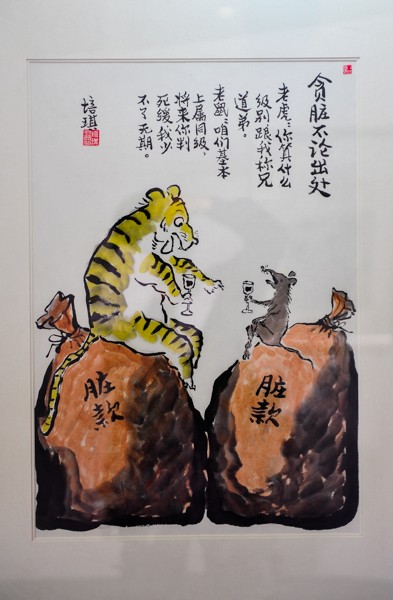 贪脏不论出处
老虎：你算什么
级别跟我称兄
道弟。
老鼠：咱们基本
上属同级，
将来你判
死缓我少
不了死期。
培琪
脏款
脏款